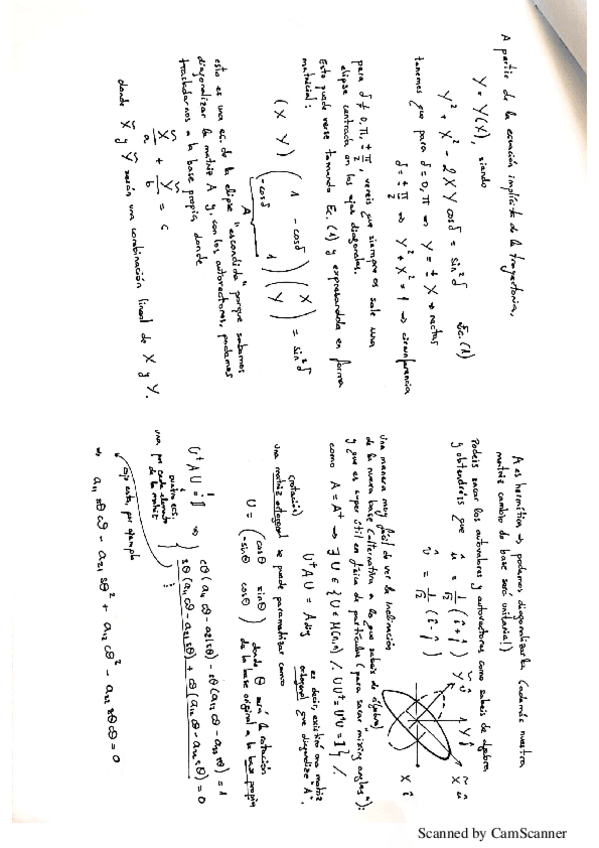 A partir de la ecuación implícita de la trayectoria,
Y = Y(X), siendo
Y² + X² - 2XY cosδ = sin²δ Ec.(1)
tenemos que para δ = 0, π ⇒ Y = ± X → rectas
δ = ± π/2 ⇒ Y² + X² = 1 → circunferencia
para δ ≠ 0, π, ± π/2, vereis que siempre os sale una
elipse centrada en los ejes diagonales.
Esto puede verse tomando Ec.(1) y expresandola en forma
matricial:
(X Y) (1 -cosδ
-cosδ 1) (X
Y) = sin²δ
A
esto es una ec. de la elipse "escondida" porque sabemos
diagonalizar la matriz A y, con los autovectores, podemos
trasladarnos a la base propia, donde
X̃/a + Ỹ/b = c
donde X̃ y Ỹ serán una combinación lineal de X y Y.
A es hermítica ⇒ podemos diagonalizarla (además nuestra
matriz cambio de base será unitaria!)
Podeis sacar los autovalores y autovectores como sabeis de algebra
y obtendréis que û = 1/√2 (î + ĵ)
v̂ = 1/√2 (î - ĵ)
Y ĵ
X î
Una manera muy fácil de ver la inclinación
de la nueva base (alternativa a la que sabeis de álgebra)
y que es super útil en física de partículas (para sacar "mixing angles"):
como A = A⁺ → ∃ U ∈ {U ∈ M(n,n) / UU⁺ = U⁺U = 1} /
U⁺AU = A diag
es decir, existirá una matriz
ortogonal que diagonalize "A".
(rotación)
Una matriz ortogonal se puede parametrizar como
U = (cosθ sinθ
-sinθ cosθ)
donde θ será la rotación
de la base original a la base propia
U⁺AU = 1 ⇒ { cθ(a₁₁cθ - a₂₁sθ) - sθ(a₁₂cθ - a₂₂sθ) = 1
sθ(a₁₁cθ - a₂₁sθ) + cθ(a₁₂cθ - a₂₂sθ) = 0
cuatro ecs:
una por cada elemento
de la matriz
cojo esta, por ejemplo
⇒ a₁₁sθcθ - a₂₁sθ² + a₁₂cθ² - a₂₂sθcθ = 0
Scanned by CamScanner